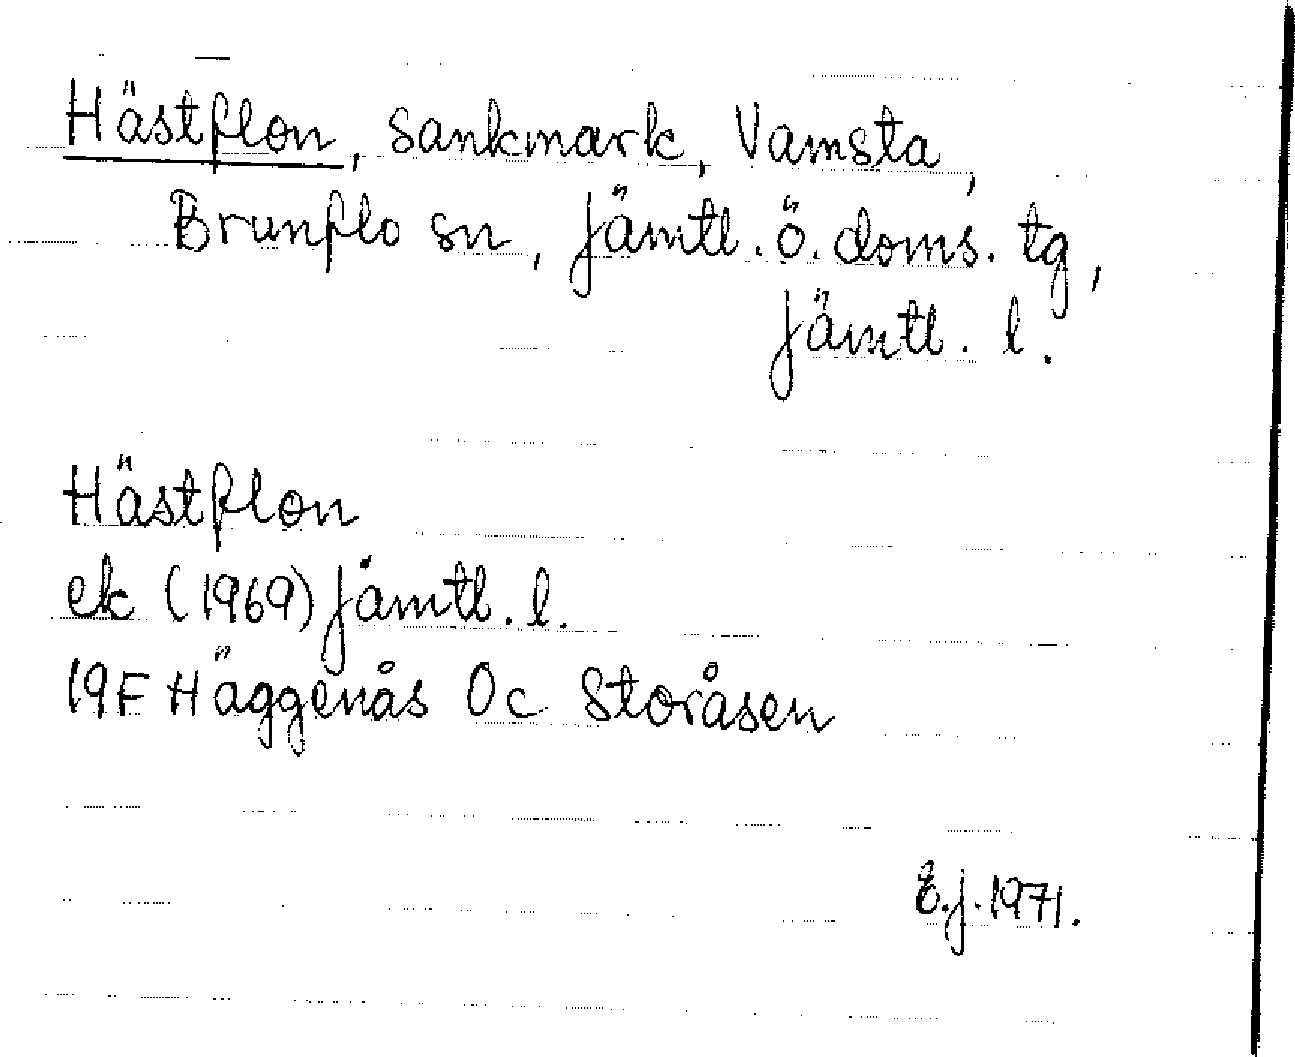 Hästflon, sankmark, Vamsta,
Brunflo sn, Jämtl. ö. doms. tg,
Jämtl. l.
Hästflon
ek (1969) Jämtl. l.
19F Häggenås 0c Storåsen
E.J. 1971.